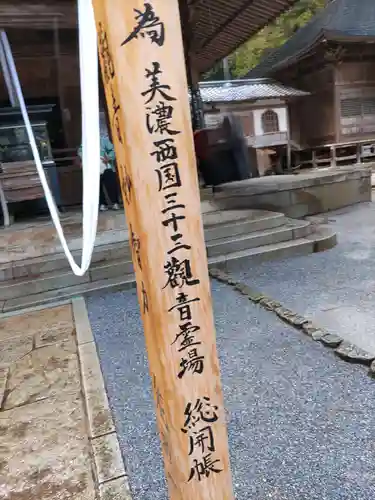 為美濃西国三十三観音霊場総開帳